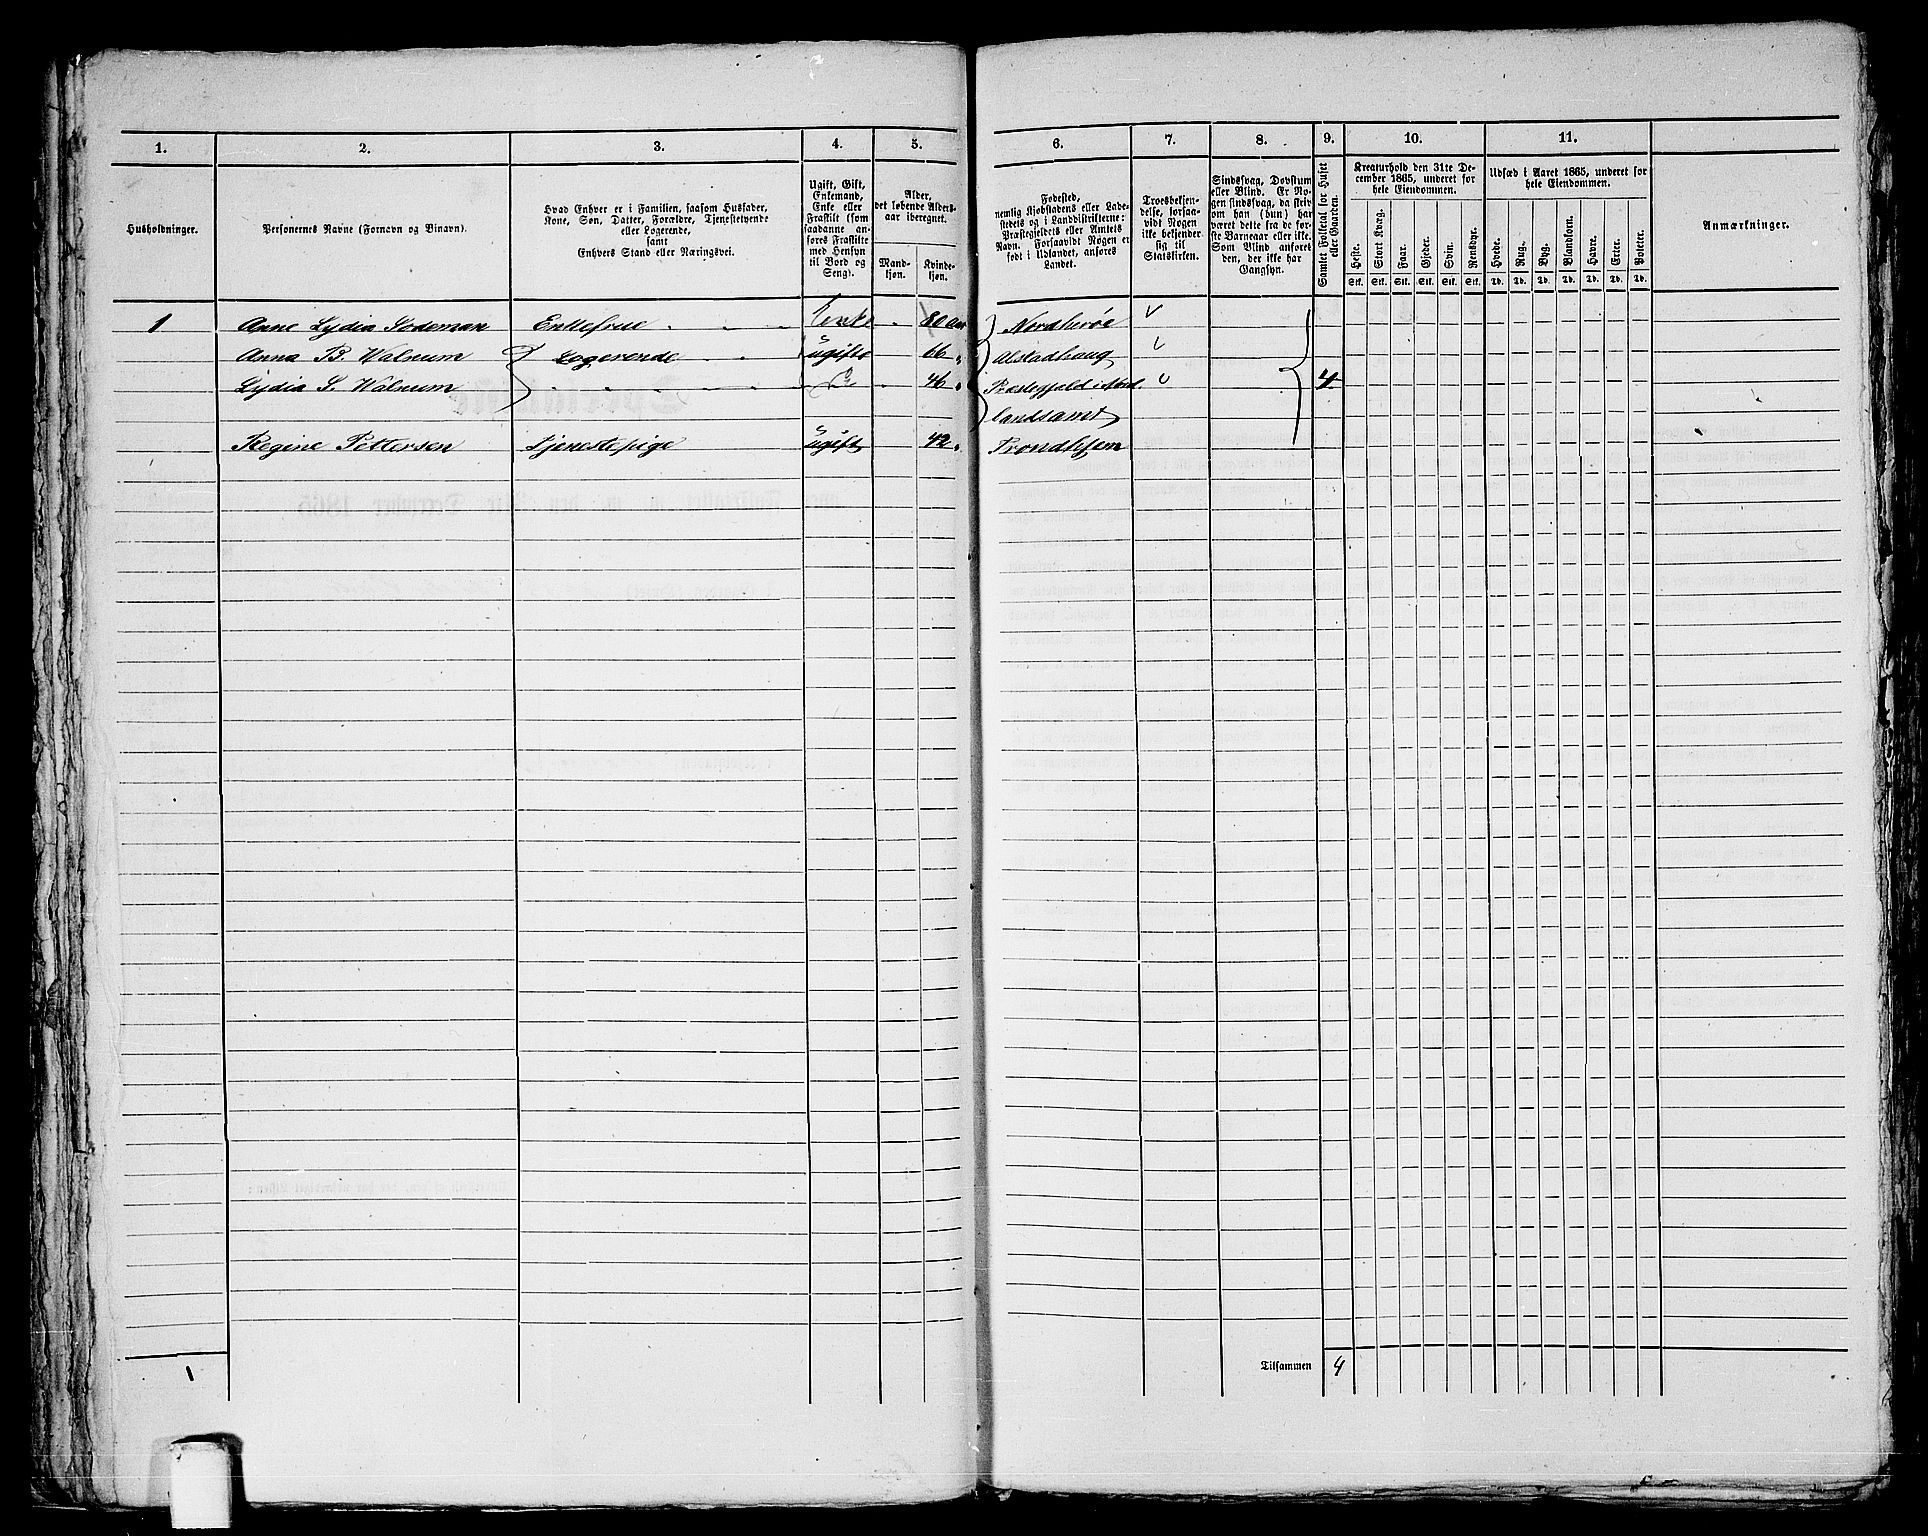 1. 2. 3. 4. 5. 6. 7. 8. 9. 10. 11.
Husholdninger.
Personernes Navne (Fornavn og Binavn).
Hvad Enhver er i Familien, saasom Husfader,
Kone, Søn, Datter, Forældre, Tjenestetyende
eller Logerende,
samt
Enhvers Stand eller Næringsvei.
Ugift, Gift,
Enkemand,
Enke eller
Fraskilt (som
saadanne an-
føres Fraskilte
med Hensyn
til Bord og
Seng).
Alder,
det løbende Alders-
aar iberegnet.
Mand-
kjøn.
Kvinde-
kjøn.
Fødested,
nemlig Kjøbstadens eller Lade-
stedets og i Landdistrikterne:
Præstegjeldets eller Amtets
Navn. Forsaavidt Nogen er
født i Udlandet, anføres
Landet.
Troesbekjen-
delse, forsaa-
vidt Nogen
ikke bekjender
sig til
Statskirken.
Sindssvag, Døvstum
eller Blind. Er No-
gen sindssvag, da skriv
om han (hun) har
været dette fra de før-
ste Barneaar eller ikke.
Som Blind anføret
den, der ikke har
Gangsyn.
Samlet Folketal for Huset
eller Gaarden.
Kreaturhold den 31te De-
cember 1865, underet for
hele Eiendommen.
Heste. Stort Kvæg. Faar. Gjeder. Svin. Rensdyr.
Stk. Stk. Stk. Stk. Stk. Stk.
Udsæd i Aaret 1865, underet for
hele Eiendommen.
Hvede. Rug. Byg. Blandkorn. Havre. Erter. Poteter.
Td. Td. Td. Td. Td. Td. Td.
Anmærkninger.
1 Anne Lydia Sodeman Enkefrue Enke 80 Aar Nordherøe
Anna B. Walnum Logerende ugifte 66 " Alstadhaug
Lydia S. Walnum 46 " Præstegjeld i Nord- 4
landsamt
Regine Pettersen Tjenestepige ugift 42 " Trondhjem
1
Tilsammen 4